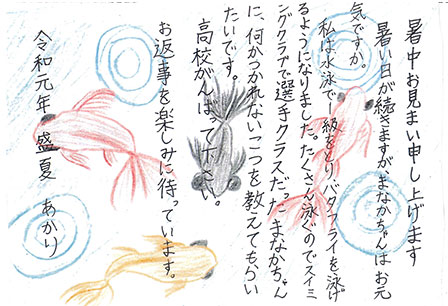 暑中お見まい申し上げます
暑い日が続きますがまなかちゃんはお元
気ですか。
私は水泳で一級をとりバタフライを泳げ
るようになりました。たくさん泳ぐのでスイミ
ングクラブで選手クラスだったまなかちゃん
に、何かつかれないこつを教えてもらい
たいです。
高校がんばって下さい。
お返事を楽しみに待っています。
令和元年 盛夏 あかり